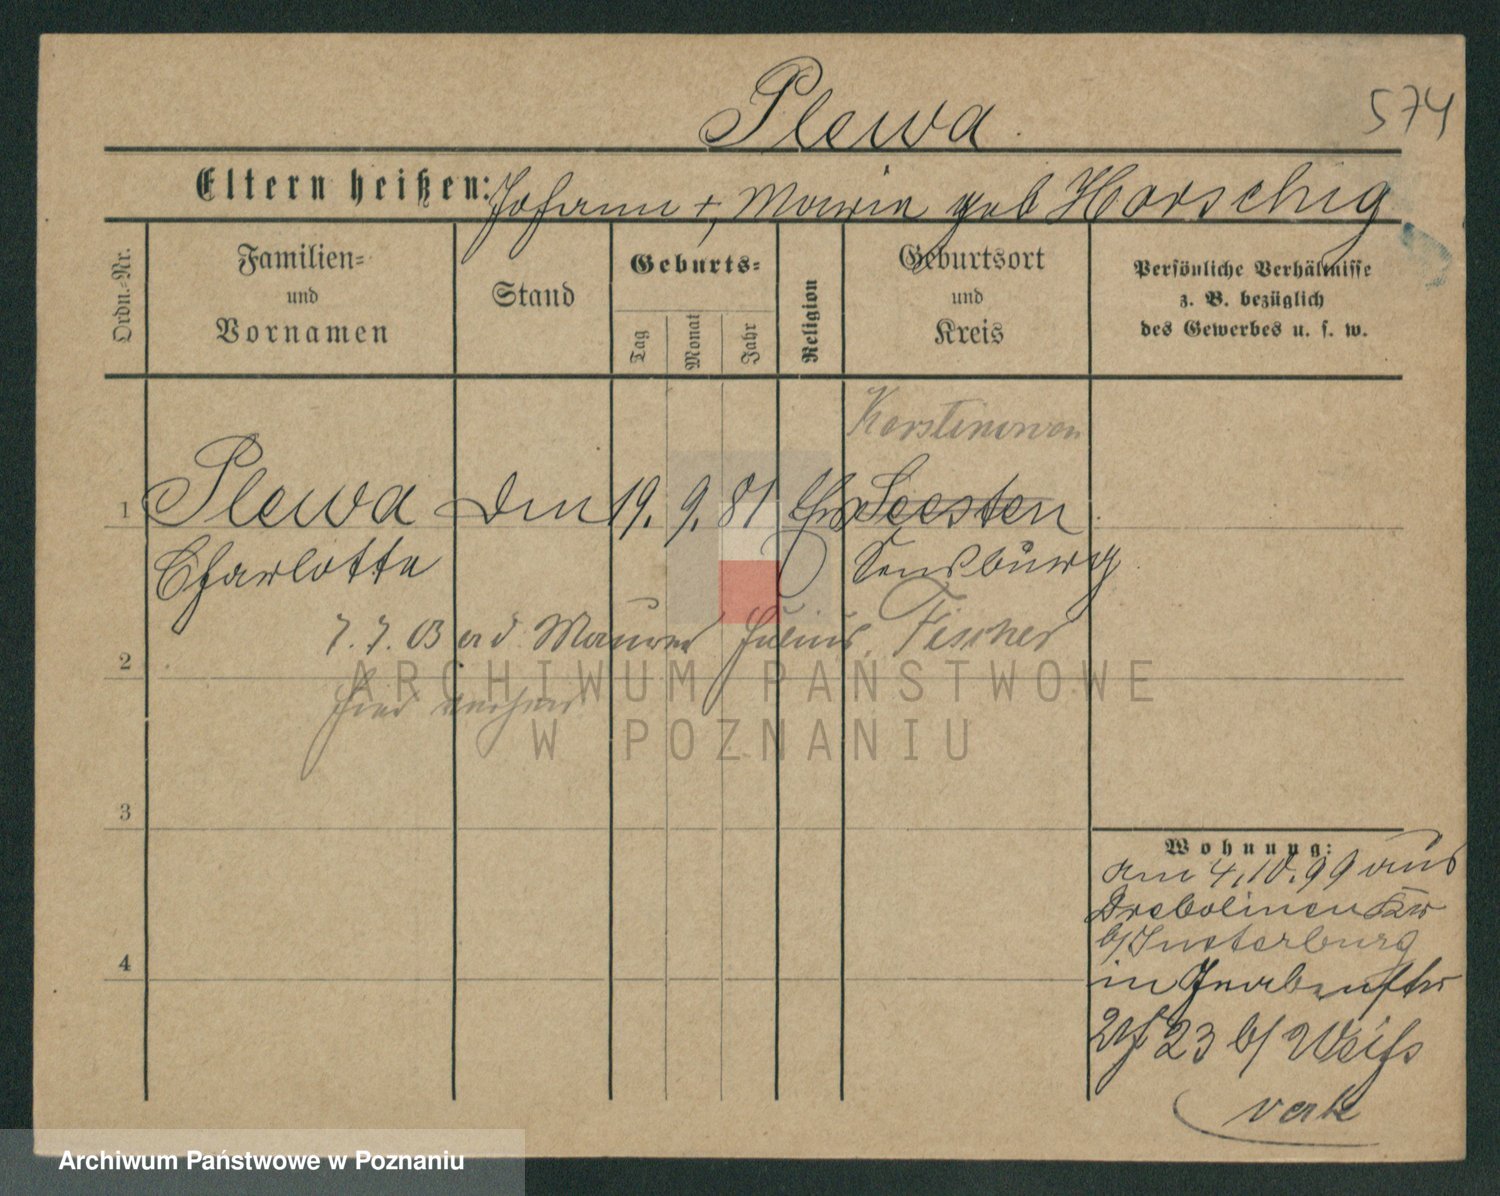 Plewa
574
Eltern heißen: Johann +, Marie geb Horschig
Ordn.-Nr.
Familien-
und
Vornamen
Stand
Geburts-
Tag
Monat
Jahr
Religion
Geburtsort
und
Kreis
Persönliche Verhältnisse
z. B. bezüglich
des Gewerbes u. s. w.
1 Plewa 19. 9. 81 Seesten
Charlotte Sensburg
7. 7. 03 Maurer Julius Fischer
2
3
4
Wohnung:
am 4.10.99 aus
b/ Insterburg
in
23 b/ Weiß
ARCHIWUM PAŃSTWOWE
W POZNANIU
Archiwum Państwowe w Poznaniu